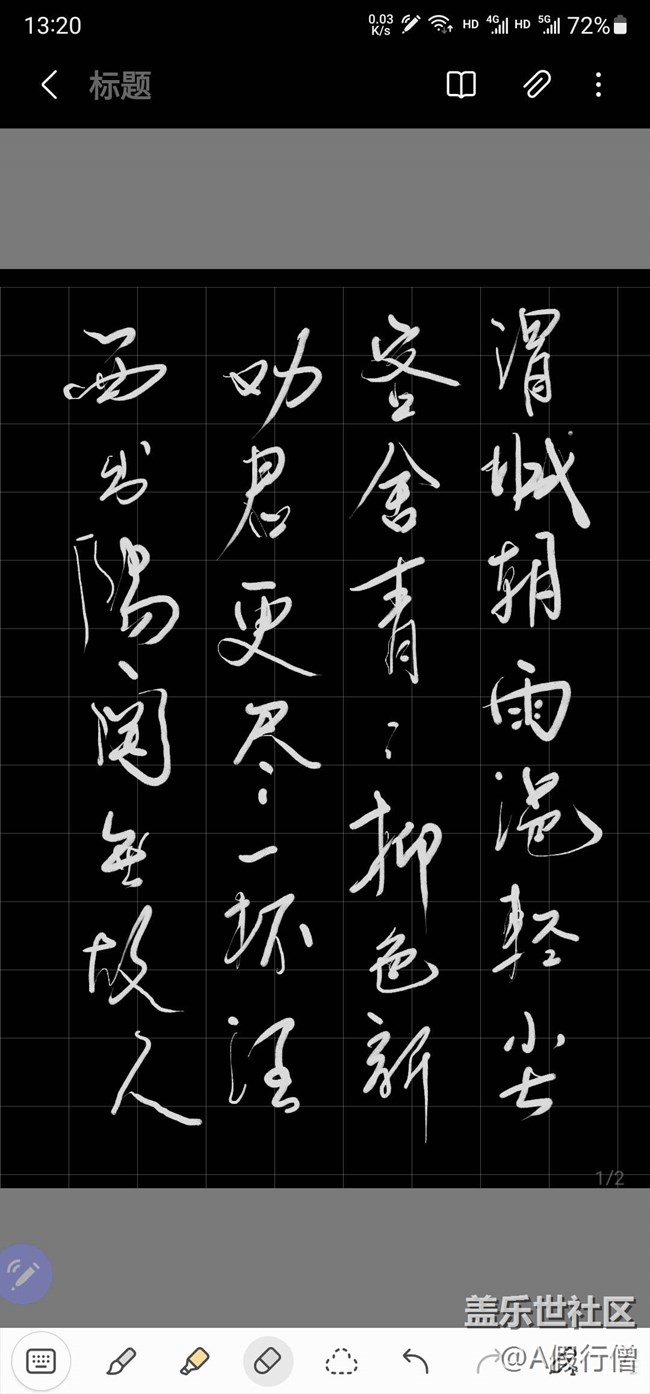 13:20
0.03 K/s HD 4G HD 5G 72%
标题
渭城朝雨浥轻尘
客舍青:柳色新
劝君更尽一杯酒
西出阳关无故人
1/2
盖乐世社区
@A假行僧